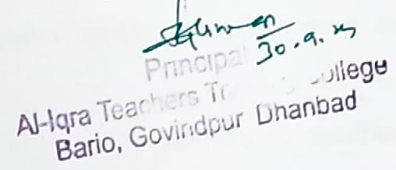 30.9.
Principal
Al-Iqra Teachers Tr        ollege
Bario, Govindpur Dhanbad